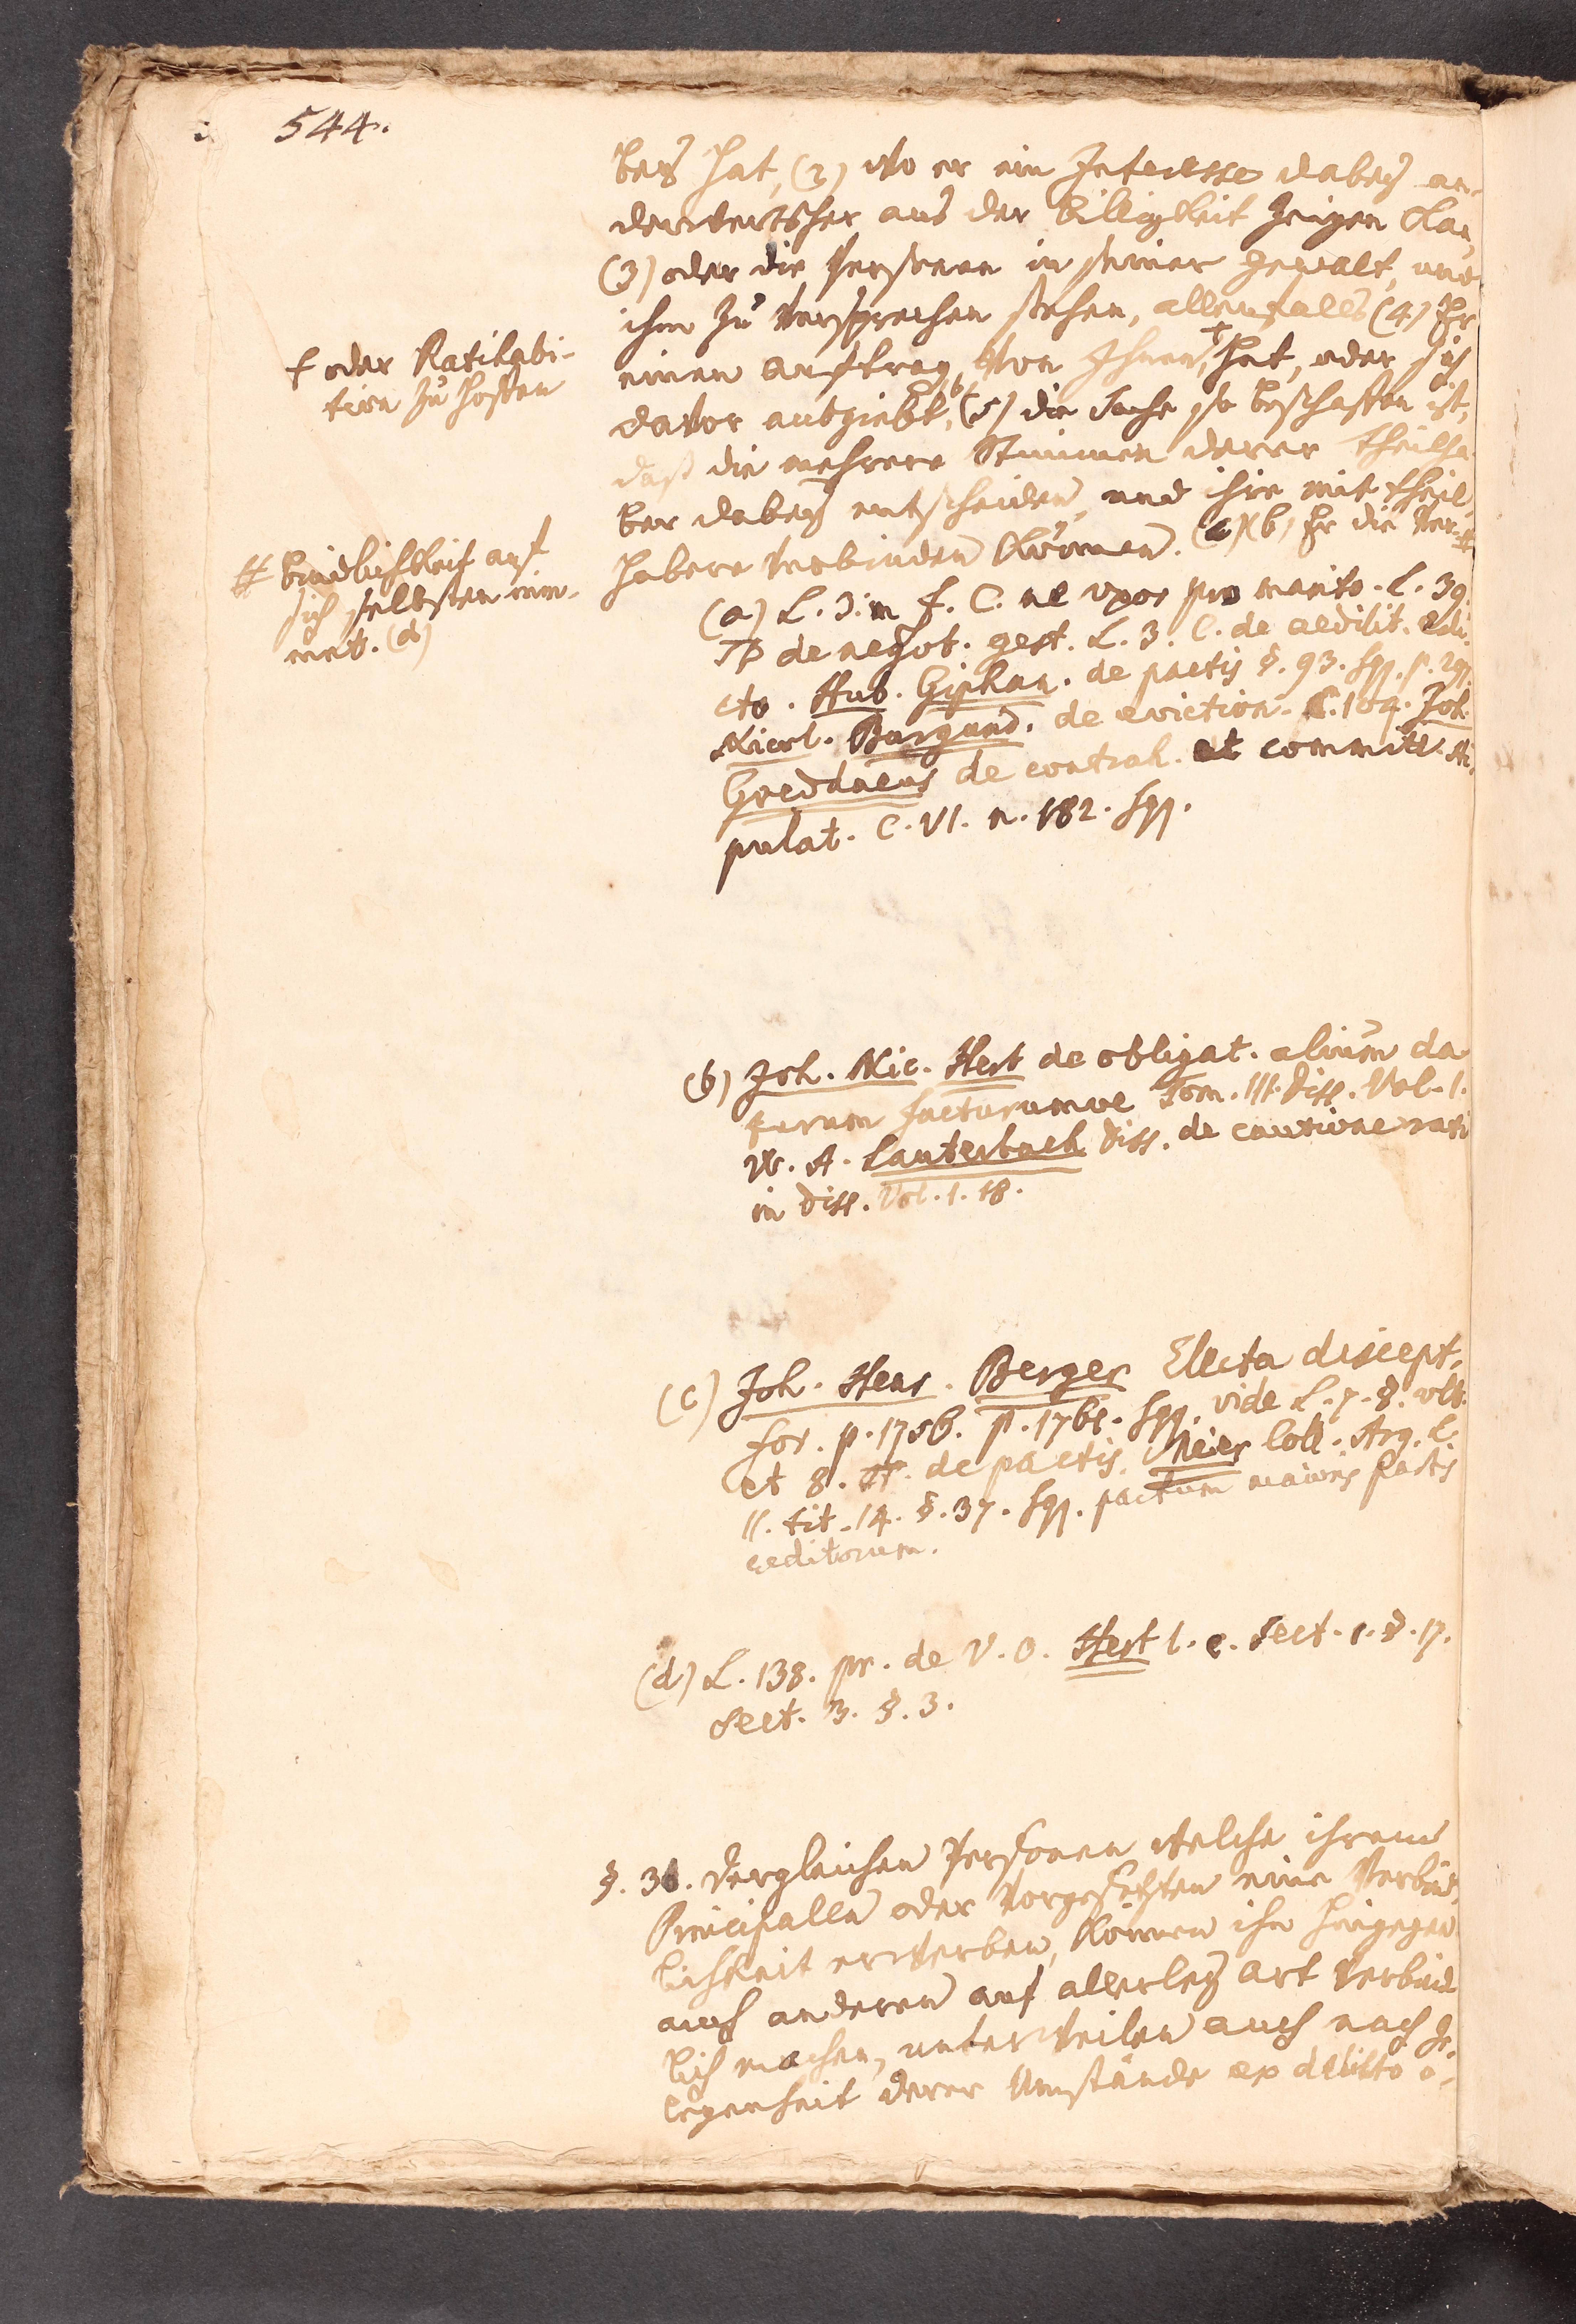 544.
bey hat, (2) wo er ein Interesse dabey an-
derwertsher aus der billigkeit zeigen kan,
(3) oder die Persohnen in seiner gewalt, und
ihm zu versprechen stehen, allenfalls (4) Er
einen auftrag von Ihnen, † hat, oder sich
davor ausgiebt, (b) (5) die Sache so beschaffen ist,
daß die mehrere Stimmen derer theilha
ber dabey entscheiden, und ihre mit theil
habere verbinden können. (c) (6) Er die Ver- #
† oder Ratihabi-
tirn zu hoffen
# bindlichkeit auf
sich selbsten nim-
met. (d)
(a) L. 3. in f. C. ne vxor pro marito. L. 39.
π de negot. gest. L. 3. C. de aedilit. edi-
cto. Hub. Giphan. de pactis §. 93. sqq. p. 291.
Nicol. Burgund. de eviction. C. 109. Joh.
Goeddaeus de contrah. et committ. sti-
pulat. C. VI. n. 182. sqq.
(b) Joh. Nic. Hert de obligat. alium da
turum facturumve Tom. III. Diss. Vol. 1.
W. A. Lauterbach Diss. de cautione rati
in Diss. Vol. 1. 18.
(c) Joh. Henr. Berger Electa discept.
for. p. 1756. p. 1761. sqq. vide L. 7. §. vlt.
et 8. π. de pactis. Meier Coll. Arg. L.
II. tit. 14. §. 37. sqq. pactum maioris partis
creditorum.
(d) L. 138. pr. de V. O. Hert l. c. Sect. 1. §. 17.
Sect. 3. §. 3.
§. 36. Dergleichen Personen welche ihrem
Principalen oder Vorgesetzten eine Verbind-
lichkeit erwerben, können ihn hingegen
auch anderen auf allerley art verbind
lich machen, unterweilen auch nach ge-
legenheit derer Umstände ex delicto o-